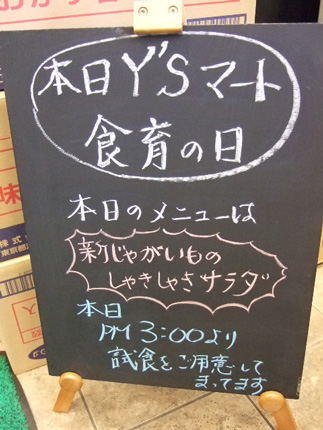 本日Y'Sマート
食育の日
本日のメニューは
新じゃがいもの
しゃきしゃきサラダ
本日
PM 3:00より
試食をご用意して
まってます
味
株式
東京都